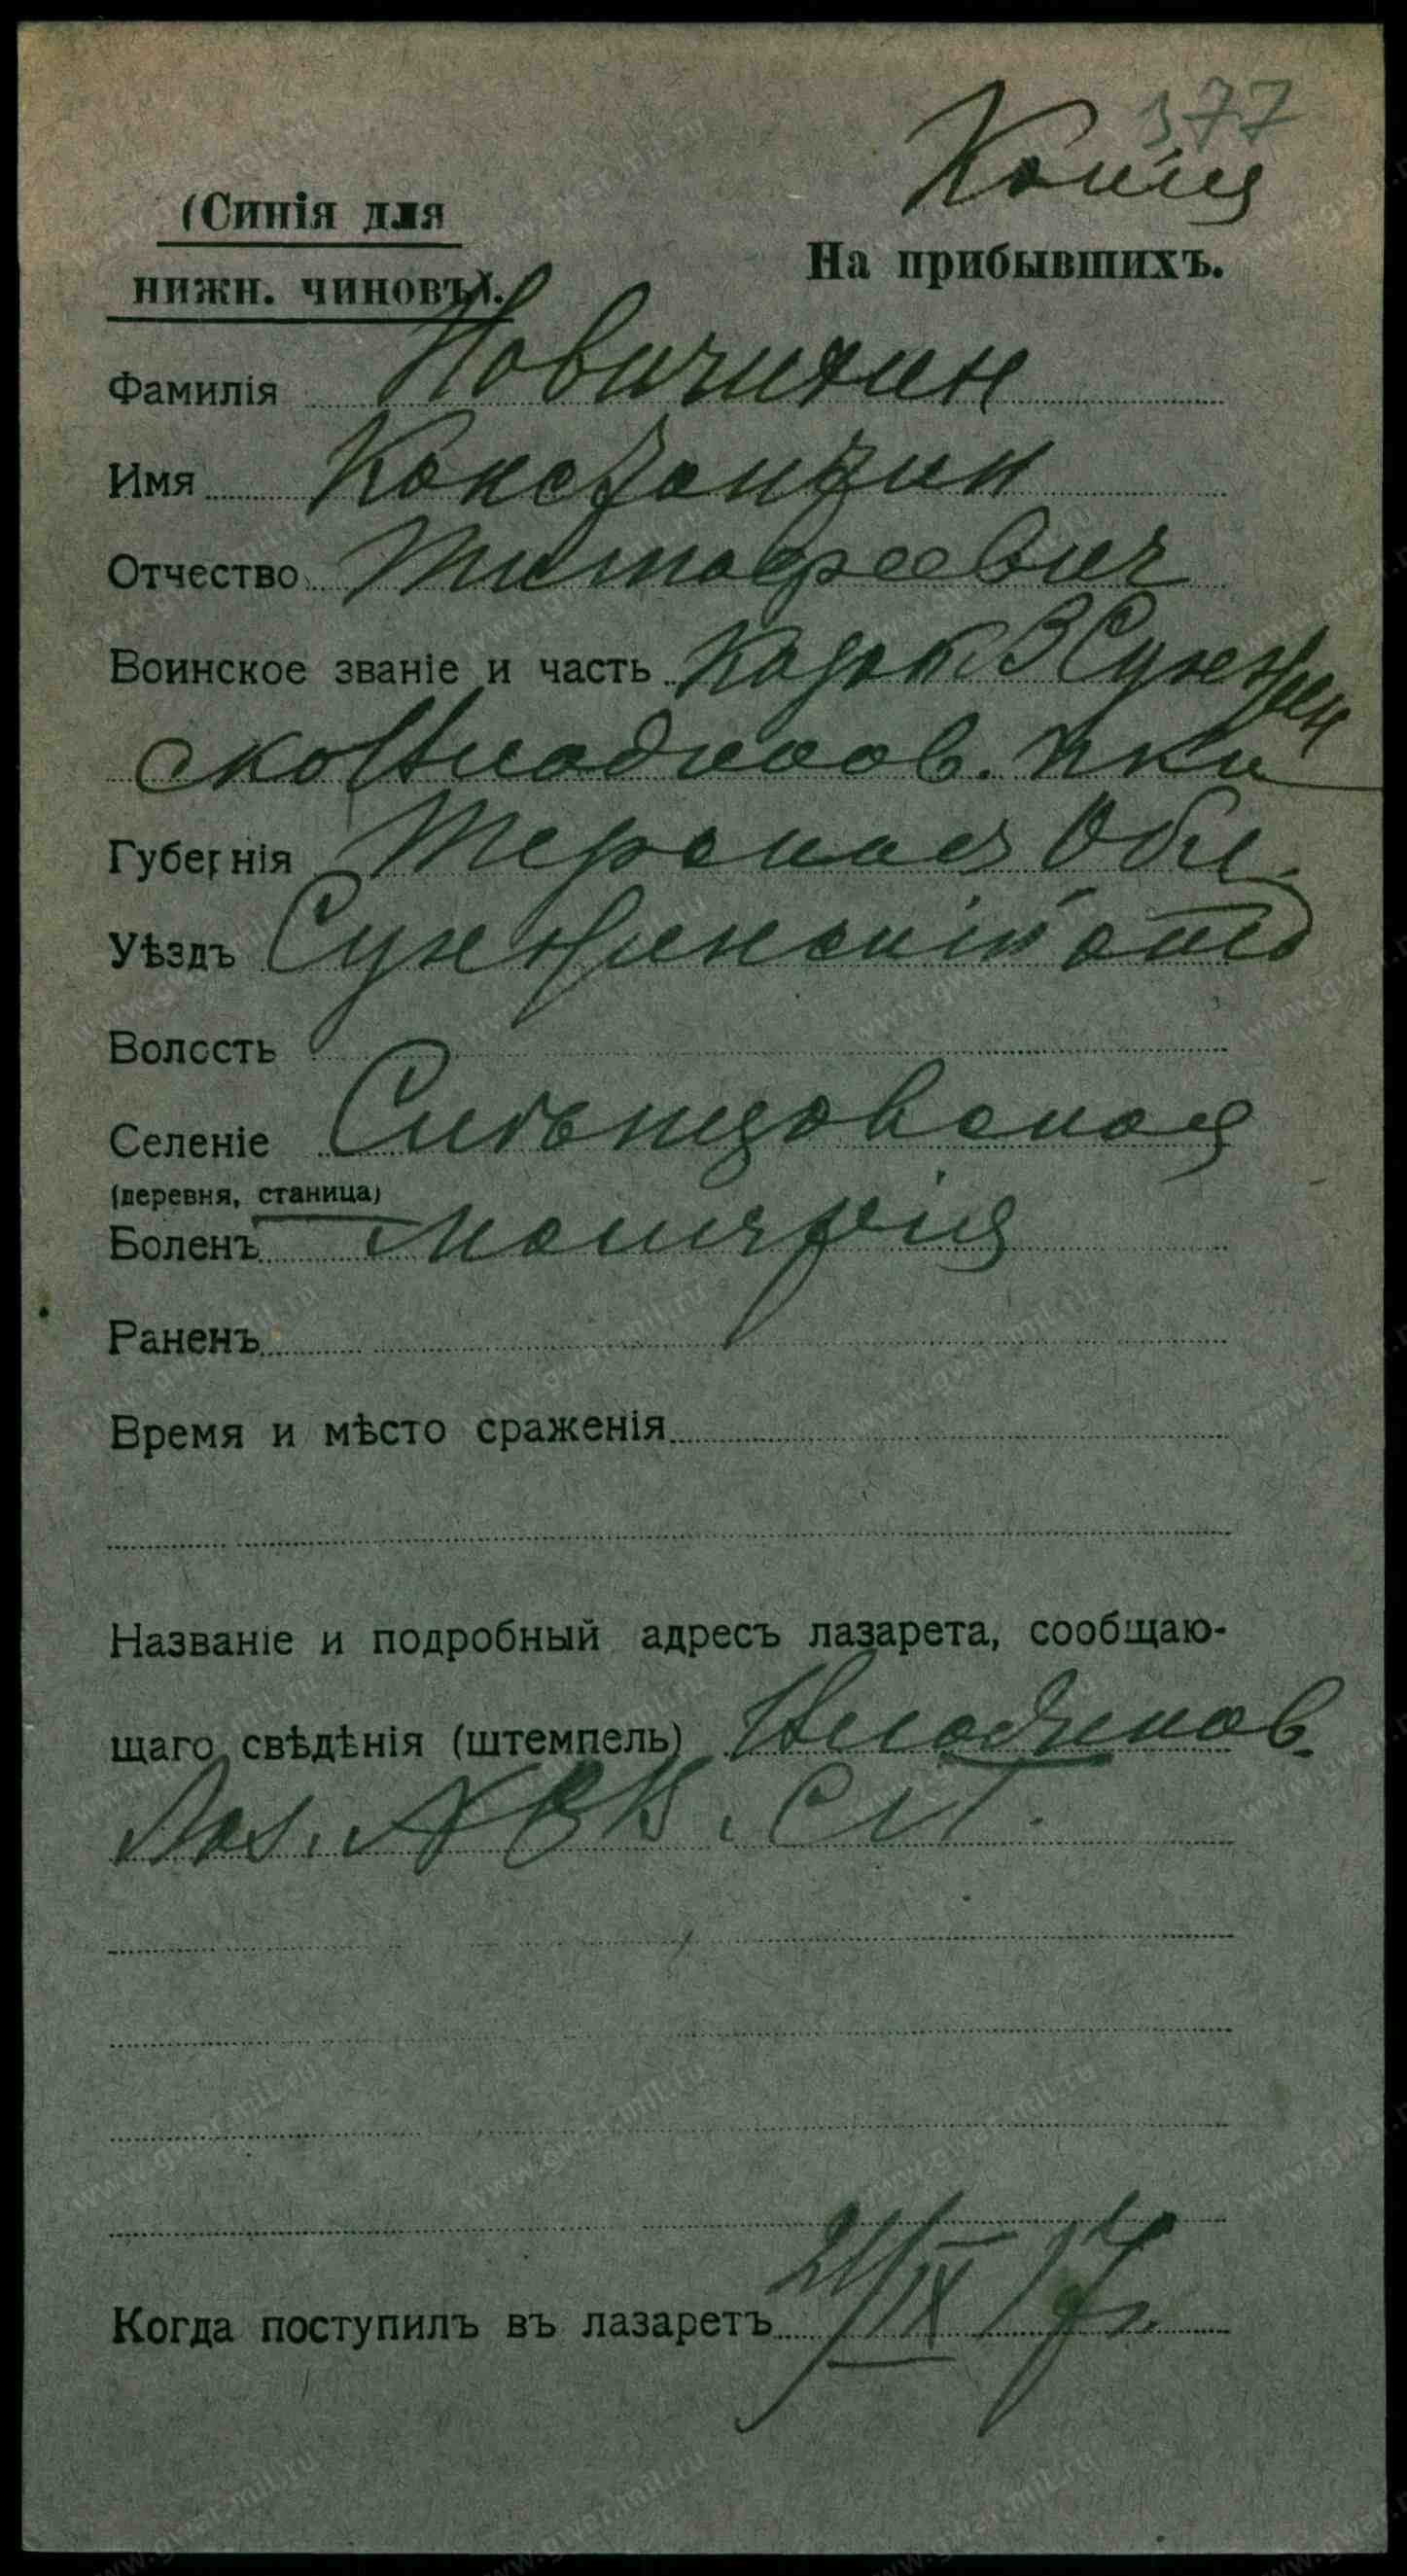 377
Копія
(Синія для
нижн. чиновъ).
На прибывшихъ.
Фамилія Новичихин
Имя Константин
Отчество Тимофеевич
Воинское званіе и часть Казак 3 Сунжен
ско Владикав. пка
Губернія Терская Обл.
Уѣздъ Сунженский отд
Волость
Селеніе Слѣпцовская
(деревня, станица)
Боленъ малярія
Раненъ
Время и мѣсто сраженія
Названіе и подробный адресъ лазарета, сообщаю-
щаго свѣдѣнія (штемпель) Владикав.
Лаз.
Когда поступилъ въ лазаретъ 21/IX 17 г.